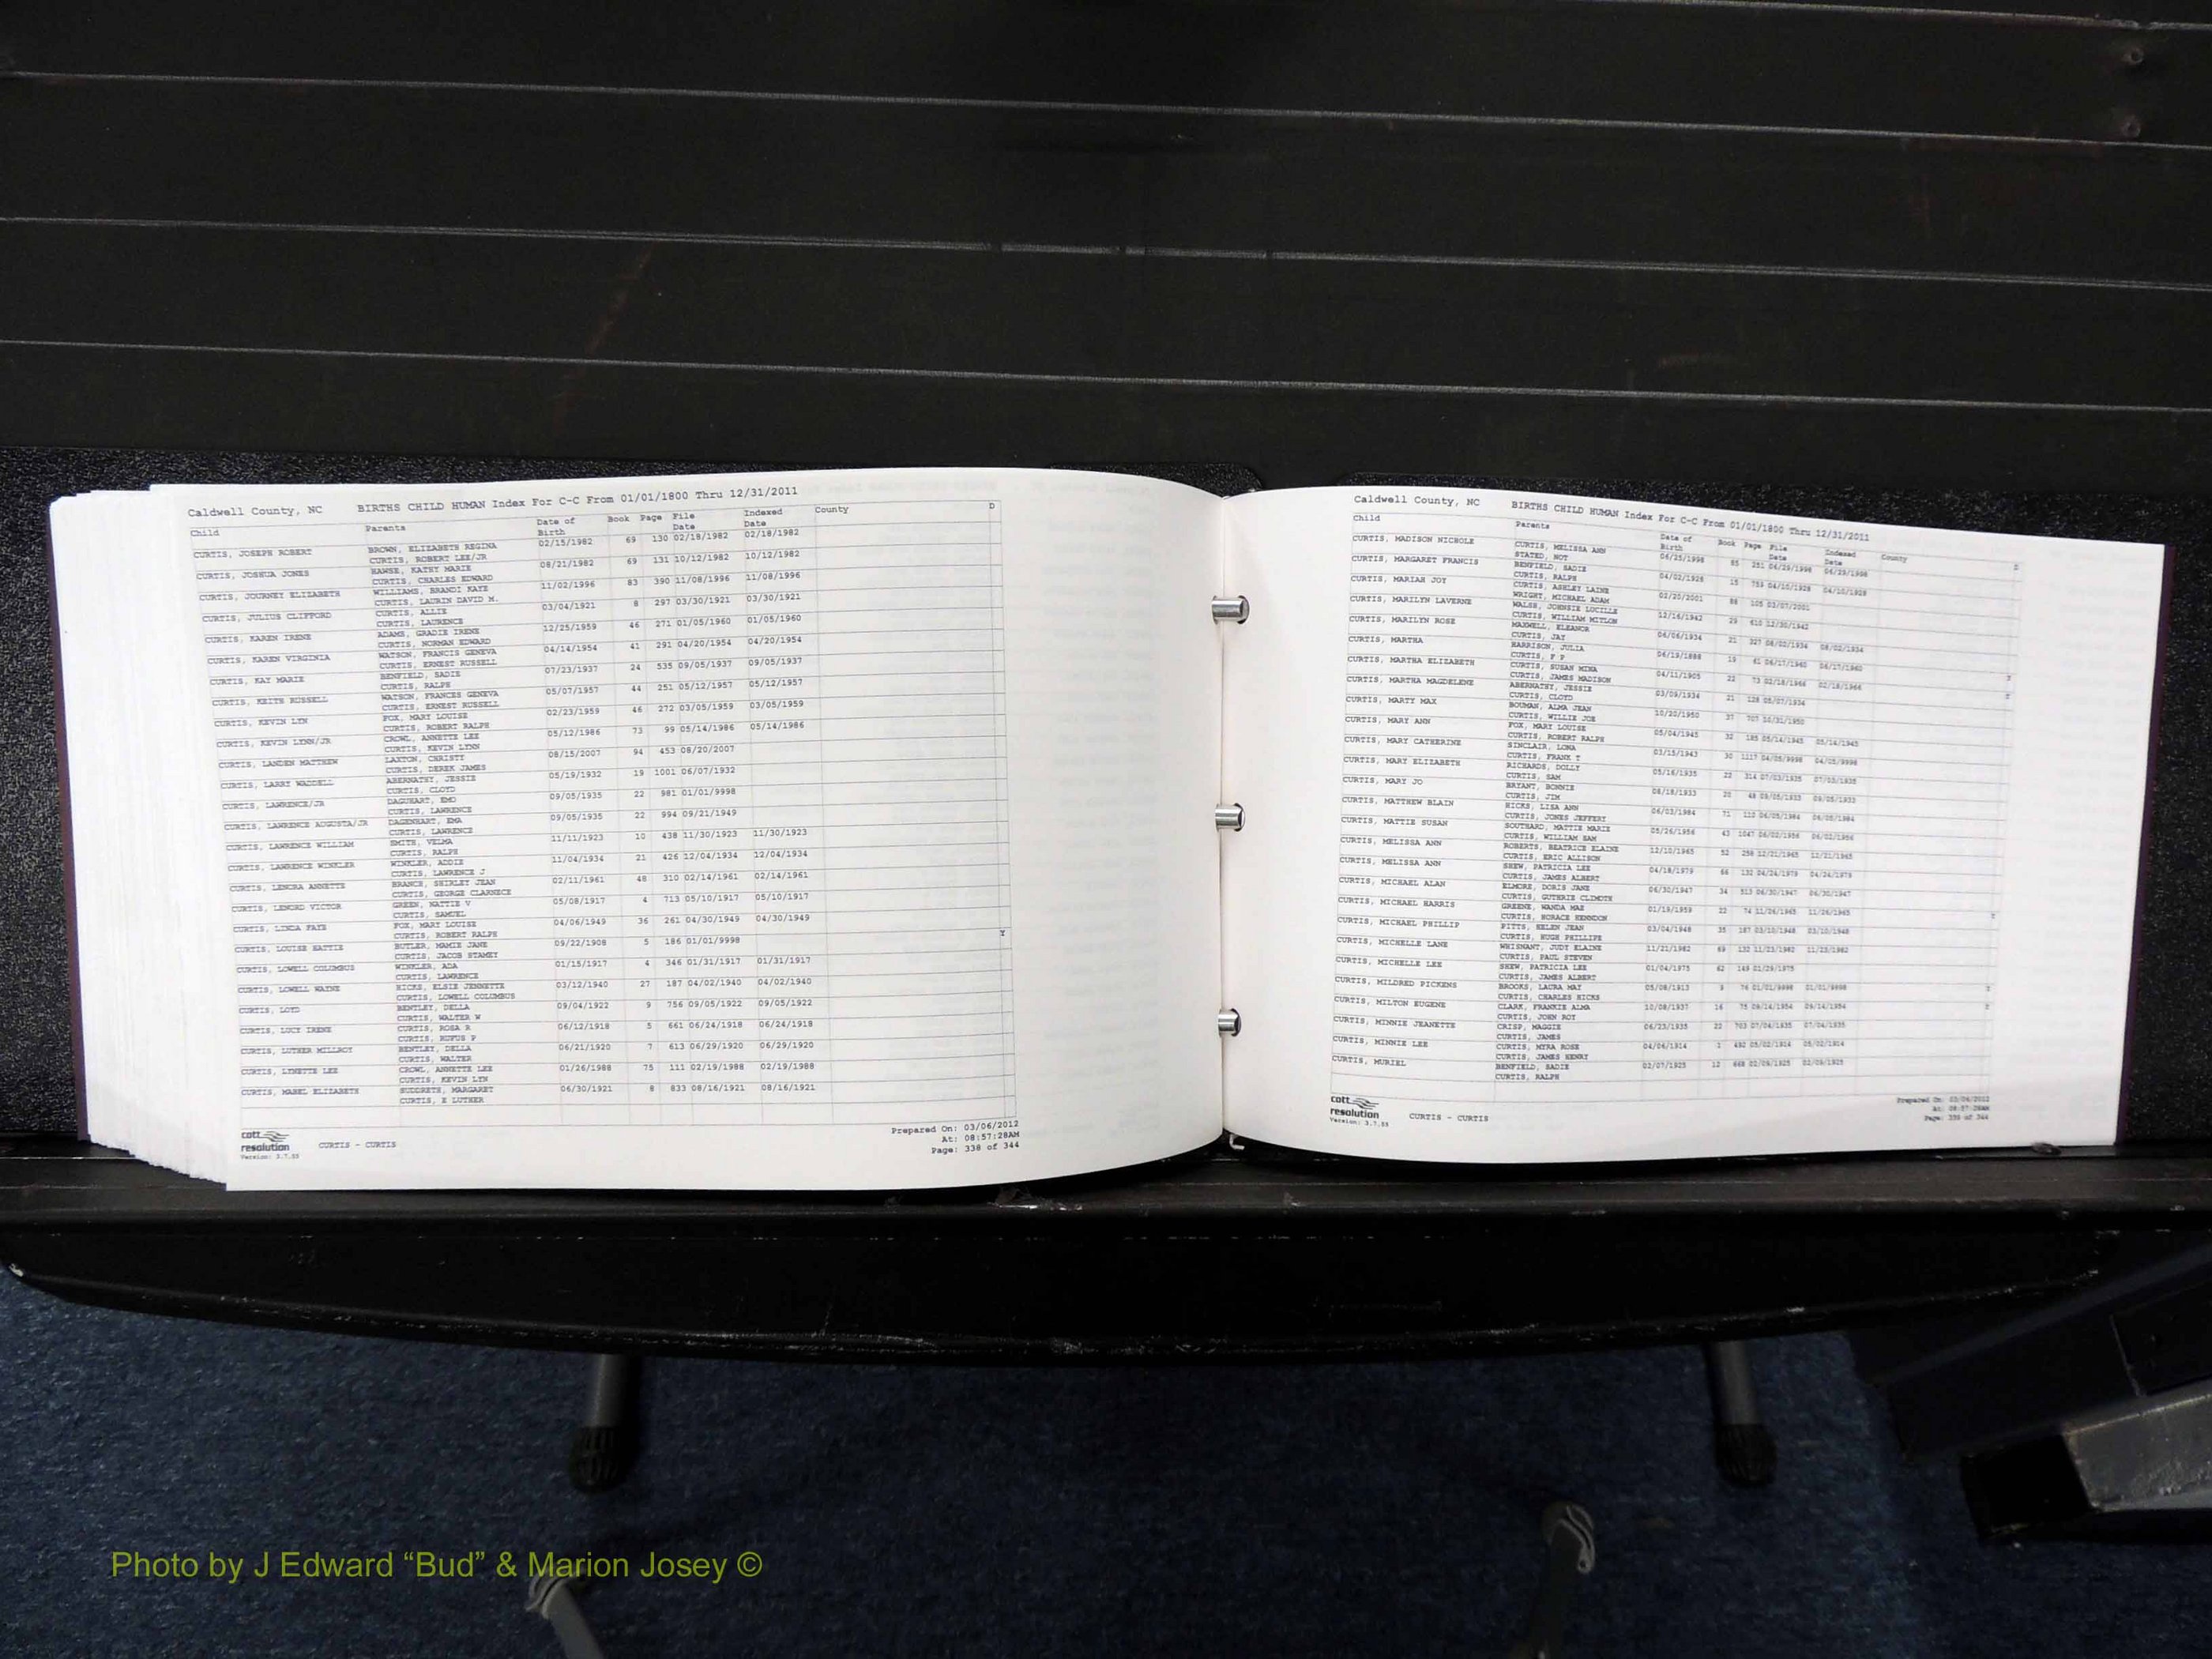 Caldwell County, NC BIRTHS CHILD HUMAN Index For C-C From 01/01/1800 Thru 12/31/2011
Child Parents Date of Birth Book Page File Date Indexed Date County D
CURTIS, JOSEPH ROBERT BROWN, ELIZABETH REGINA 02/15/1982 69 130 02/18/1982 02/18/1982
CURTIS, ROBERT LEE/JR
CURTIS, JOSHUA JONES HAWSE, KATHY MARIE 08/21/1982 69 131 10/12/1982 10/12/1982
CURTIS, CHARLES EDWARD
CURTIS, JOURNEY ELIZABETH WILLIAMS, BRANDI KAYE 11/02/1996 83 390 11/08/1996 11/08/1996
CURTIS, LAURIN DAVID M.
CURTIS, JULIUS CLIFFORD CURTIS, ALLIE 03/04/1921 8 297 03/30/1921 03/30/1921
CURTIS, LAURENCE
CURTIS, KAREN IRENE ADAMS, GRADIE IRENE 12/25/1959 46 271 01/05/1960 01/05/1960
CURTIS, NORMAN EDWARD
CURTIS, KAREN VIRGINIA WATSON, FRANCIS GENEVA 04/14/1954 41 291 04/20/1954 04/20/1954
CURTIS, ERNEST RUSSELL
CURTIS, KAY MARIE BENFIELD, SADIE 07/23/1937 24 535 09/05/1937 09/05/1937
CURTIS, RALPH
CURTIS, KEITH RUSSELL WATSON, FRANCES GENEVA 05/07/1957 44 251 05/12/1957 05/12/1957
CURTIS, ERNEST RUSSELL
CURTIS, KEVIN LYN FOX, MARY LOUISE 02/23/1959 46 272 03/05/1959 03/05/1959
CURTIS, ROBERT RALPH
CURTIS, KEVIN LYNN/JR CROWL, ANNETTE LEE 05/12/1986 73 99 05/14/1986 05/14/1986
CURTIS, KEVIN LYNN
CURTIS, LANDEN MATTHEW LAXTON, CHRISTY 08/15/2007 94 453 08/20/2007
CURTIS, DEREK JAMES
CURTIS, LARRY WADDELL ABERNATHY, JESSIE 05/19/1932 19 1001 06/07/1932
CURTIS, CLOYD
CURTIS, LAWRENCE/JR DAGUHART, EMO 09/05/1935 22 981 01/01/9998
CURTIS, LAWRENCE
CURTIS, LAWRENCE AUGUSTA/JR DAGENHART, EMA 09/05/1935 22 994 09/21/1949
CURTIS, LAWRENCE
CURTIS, LAWRENCE WILLIAM SMITH, VELMA 11/11/1923 10 438 11/30/1923 11/30/1923
CURTIS, RALPH
CURTIS, LAWRENCE WINKLER WINKLER, ADDIE 11/04/1934 21 426 12/04/1934 12/04/1934
CURTIS, LAWRENCE J
CURTIS, LENORA ANNETTE BRANCH, SHIRLEY JEAN 02/11/1961 48 310 02/14/1961 02/14/1961
CURTIS, GEORGE CLARNECE
CURTIS, LENORD VICTOR GREEN, MATTIE V 05/08/1917 4 713 05/10/1917 05/10/1917
CURTIS, SAMUEL
CURTIS, LINDA FAYE FOX, MARY LOUISE 04/06/1949 36 261 04/30/1949 04/30/1949
CURTIS, ROBERT RALPH
CURTIS, LOUISE HATTIE BUTLER, MAMIE JANE 09/22/1908 5 186 01/01/9998 Y
CURTIS, JACOB STAMEY
CURTIS, LOWELL COLUMBUS WINKLER, ADA 01/15/1917 4 346 01/31/1917 01/31/1917
CURTIS, LAWRENCE
CURTIS, LOWELL WAYNE HICKS, ELSIE JENNETTE 03/12/1940 27 187 04/02/1940 04/02/1940
CURTIS, LOWELL COLUMBUS
CURTIS, LOYD BENTLEY, DELLA 09/04/1922 9 756 09/05/1922 09/05/1922
CURTIS, WALTER W
CURTIS, LUCY IRENE CURTIS, ROSA R 06/12/1918 5 661 06/24/1918 06/24/1918
CURTIS, RUFUS P
CURTIS, LUTHER MILLROY BENTLEY, DELLA 06/21/1920 7 613 06/29/1920 06/29/1920
CURTIS, WALTER
CURTIS, LYNETTE LEE CROWL, ANNETTE LEE 01/26/1988 75 111 02/19/1988 02/19/1988
CURTIS, KEVIN LYN
CURTIS, MABEL ELIZABETH SUDDRETH, MARGARET 06/30/1921 8 833 08/16/1921 08/16/1921
CURTIS, E LUTHER
cott resolution
Version: 3.7.55
CURTIS - CURTIS
Prepared On: 03/06/2012
At: 08:57:28AM
Page: 338 of 344
Caldwell County, NC BIRTHS CHILD HUMAN Index For C-C From 01/01/1800 Thru 12/31/2011
Child Parents Date of Birth Book Page File Date Indexed Date County
CURTIS, MADISON NICHOLE CURTIS, MELISSA ANN 06/25/1998 85 251 06/29/1998 06/29/1998
STATED, NOT
CURTIS, MARGARET FRANCIS BENFIELD, SADIE 04/02/1928 15 759 04/10/1928 04/10/1928
CURTIS, RALPH
CURTIS, MARIAH JOY CURTIS, ASHLEY LAINE 02/20/2001 88 105 03/07/2001
WRIGHT, MICHAEL ADAM
CURTIS, MARILYN LAVERNE WALSH, JOHNSIE LUCILLE 12/16/1942 29 610 12/30/1942
CURTIS, WILLIAM MITLON
CURTIS, MARILYN ROSE MAXWELL, ELEANOR 06/06/1934 21 327 08/02/1934 08/02/1934
CURTIS, JAY
CURTIS, MARTHA HARRISON, JULIA 06/19/1888 19 61 06/17/1960 06/17/1960
CURTIS, F P
CURTIS, MARTHA ELIZABETH CURTIS, SUSAN MINA 04/11/1905 22 73 02/18/1966 02/18/1966
CURTIS, JAMES MADISON
CURTIS, MARTHA MAGDELENE ABERNATHY, JESSIE 03/09/1934 21 128 05/07/1934
CURTIS, CLOYD
CURTIS, MARTY MAX BOUMAN, ALMA JEAN 10/20/1950 37 707 10/31/1950
CURTIS, WILLIE JOE
CURTIS, MARY ANN FOX, MARY LOUISE 05/04/1945 32 185 05/14/1945 05/14/1945
CURTIS, ROBERT RALPH
CURTIS, MARY CATHERINE SINCLAIR, LONA 03/15/1943 30 1117 04/05/9998 04/05/9998
CURTIS, FRANK T
CURTIS, MARY ELIZABETH RICHARDS, DOLLY 05/16/1935 22 314 07/03/1935 07/03/1935
CURTIS, SAM
CURTIS, MARY JO BRYANT, BONNIE 08/18/1933 20 48 09/05/1933 09/05/1933
CURTIS, JIM
CURTIS, MATTHEW BLAIN HICKS, LISA ANN 06/03/1984 71 110 06/05/1984 06/05/1984
CURTIS, JONES JEFFERY
CURTIS, MATTIE SUSAN SOUTHARD, MATTIE MARIE 05/26/1956 43 1047 06/02/1956 06/02/1956
CURTIS, WILLIAM SAM
CURTIS, MELISSA ANN ROBERTS, BEATRICE ELAINE 12/10/1965 52 258 12/21/1965 12/21/1965
CURTIS, ERIC ALLISON
CURTIS, MELISSA ANN SHEW, PATRICIA LEE 04/18/1979 66 132 04/24/1979 04/24/1979
CURTIS, JAMES ALBERT
CURTIS, MICHAEL ALAN ELMORE, DORIS JANE 06/30/1947 34 513 06/30/1947 06/30/1947
CURTIS, GUTHRIE CLIMOTE
CURTIS, MICHAEL HARRIS GREENE, WANDA MAE 01/19/1959 22 74 11/26/1965 11/26/1965
CURTIS, HORACE HENNDON
CURTIS, MICHAEL PHILLIP PITTS, HELEN JEAN 03/04/1948 35 187 03/10/1948 03/10/1948
CURTIS, HUGH PHILLIPE
CURTIS, MICHELLE LANE WHISNANT, JUDY ELAINE 11/21/1982 69 132 11/23/1982 11/23/1982
CURTIS, PAUL STEVEN
CURTIS, MICHELLE LEE SHEW, PATRICIA LEE 01/04/1975 62 149 01/29/1975
CURTIS, JAMES ALBERT
CURTIS, MILDRED PICKENS BROOKS, LAURA MAY 05/08/1913 76 01/01/9998 01/01/9998
CURTIS, CHARLES HICKS
CURTIS, MILTON EUGENE CLARK, FRANKIE ALMA 10/08/1937 16 75 09/14/1954 09/14/1954
CURTIS, JOHN ROY
CURTIS, MINNIE JEANETTE CRISP, MAGGIE 06/23/1935 22 703 07/04/1935 07/04/1935
CURTIS, JAMES
CURTIS, MINNIE LEE CURTIS, MYRA ROSE 04/06/1914 1 492 05/02/1914 05/02/1914
CURTIS, JAMES HENRY
CURTIS, MURIEL BENFIELD, SADIE 02/07/1925 12 668 02/09/1925 02/09/1925
CURTIS, RALPH
cott resolution
Version: 3.7.55
CURTIS - CURTIS
Prepared On: 03/06/2012
At: 08:57:28AM
Page: 339 of 344
Photo by J Edward “Bud” & Marion Josey ©